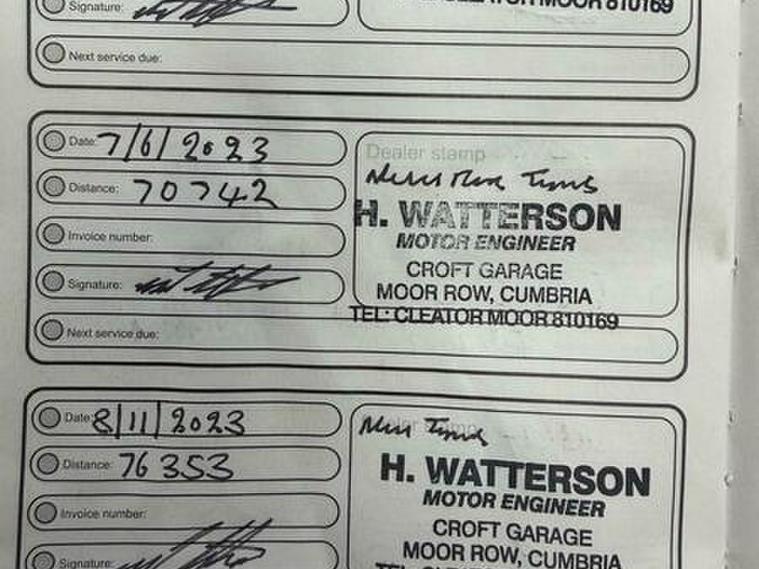 Signature:
CLEATOR MOOR 810169
Next service due:
Date: 7/6/2023
Dealer stamp
Distance: 70742
H. WATTERSON
MOTOR ENGINEER
Invoice number:
CROFT GARAGE
Signature:
MOOR ROW, CUMBRIA
TEL: CLEATOR MOOR 810169
Next service due:
Date: 8/11/2023
Distance: 76353
H. WATTERSON
MOTOR ENGINEER
Invoice number:
CROFT GARAGE
MOOR ROW, CUMBRIA
Signature: